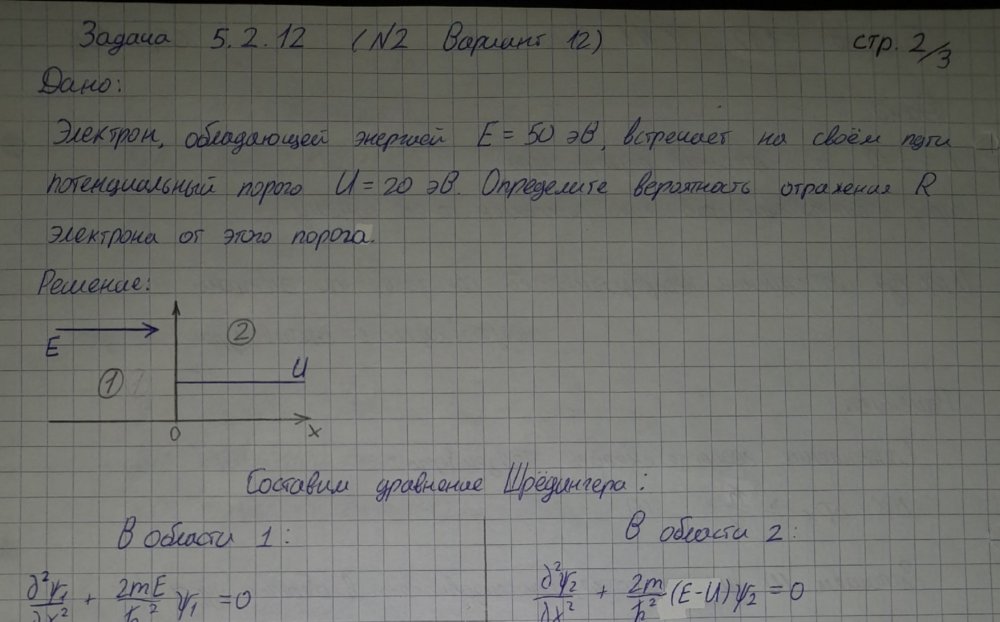 Задача 5.2.12 (N2 Вариант 12) стр. 2/3
Дано:
Электрон, обладающей энергией E = 50 эВ, встречает на своём пути
потенциальный порого U = 20 эВ. Определите вероятность отражения R
электрона от этого порога.
Решение:
E
②
U
①
0
x
Составим уравнение Шрёдингера:
В области 1: В области 2:
∂²ψ₁/∂x² + 2mE/ħ² ψ₁ = 0 ∂²ψ₂/∂x² + 2m/ħ² (E-U)ψ₂ = 0